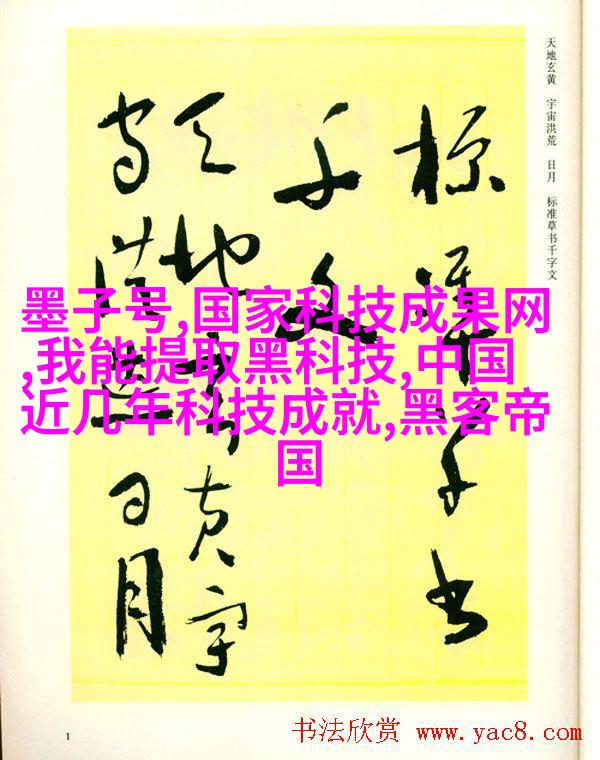 天地玄黄 宇宙洪荒 日月 标准草书千字文
標準草书
千文
天地玄黄宇
宙洪荒日月
墨子号,国家科技成果网
,我能提取黑科技,中国
近几年科技成就,黑客帝
国
1
书法欣赏 www.yac8.com